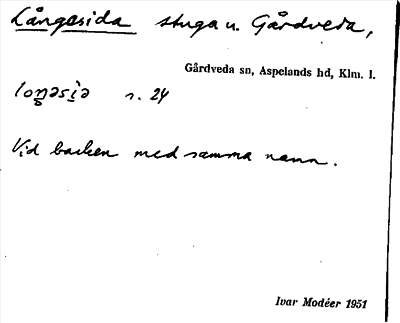 Långesida stuga u. Gårdveda,
Gårdveda sn, Aspelands hd, Klm. l.
loŋəsiə s. 24
Vid backen med samma namn.
Ivar Modéer 1951